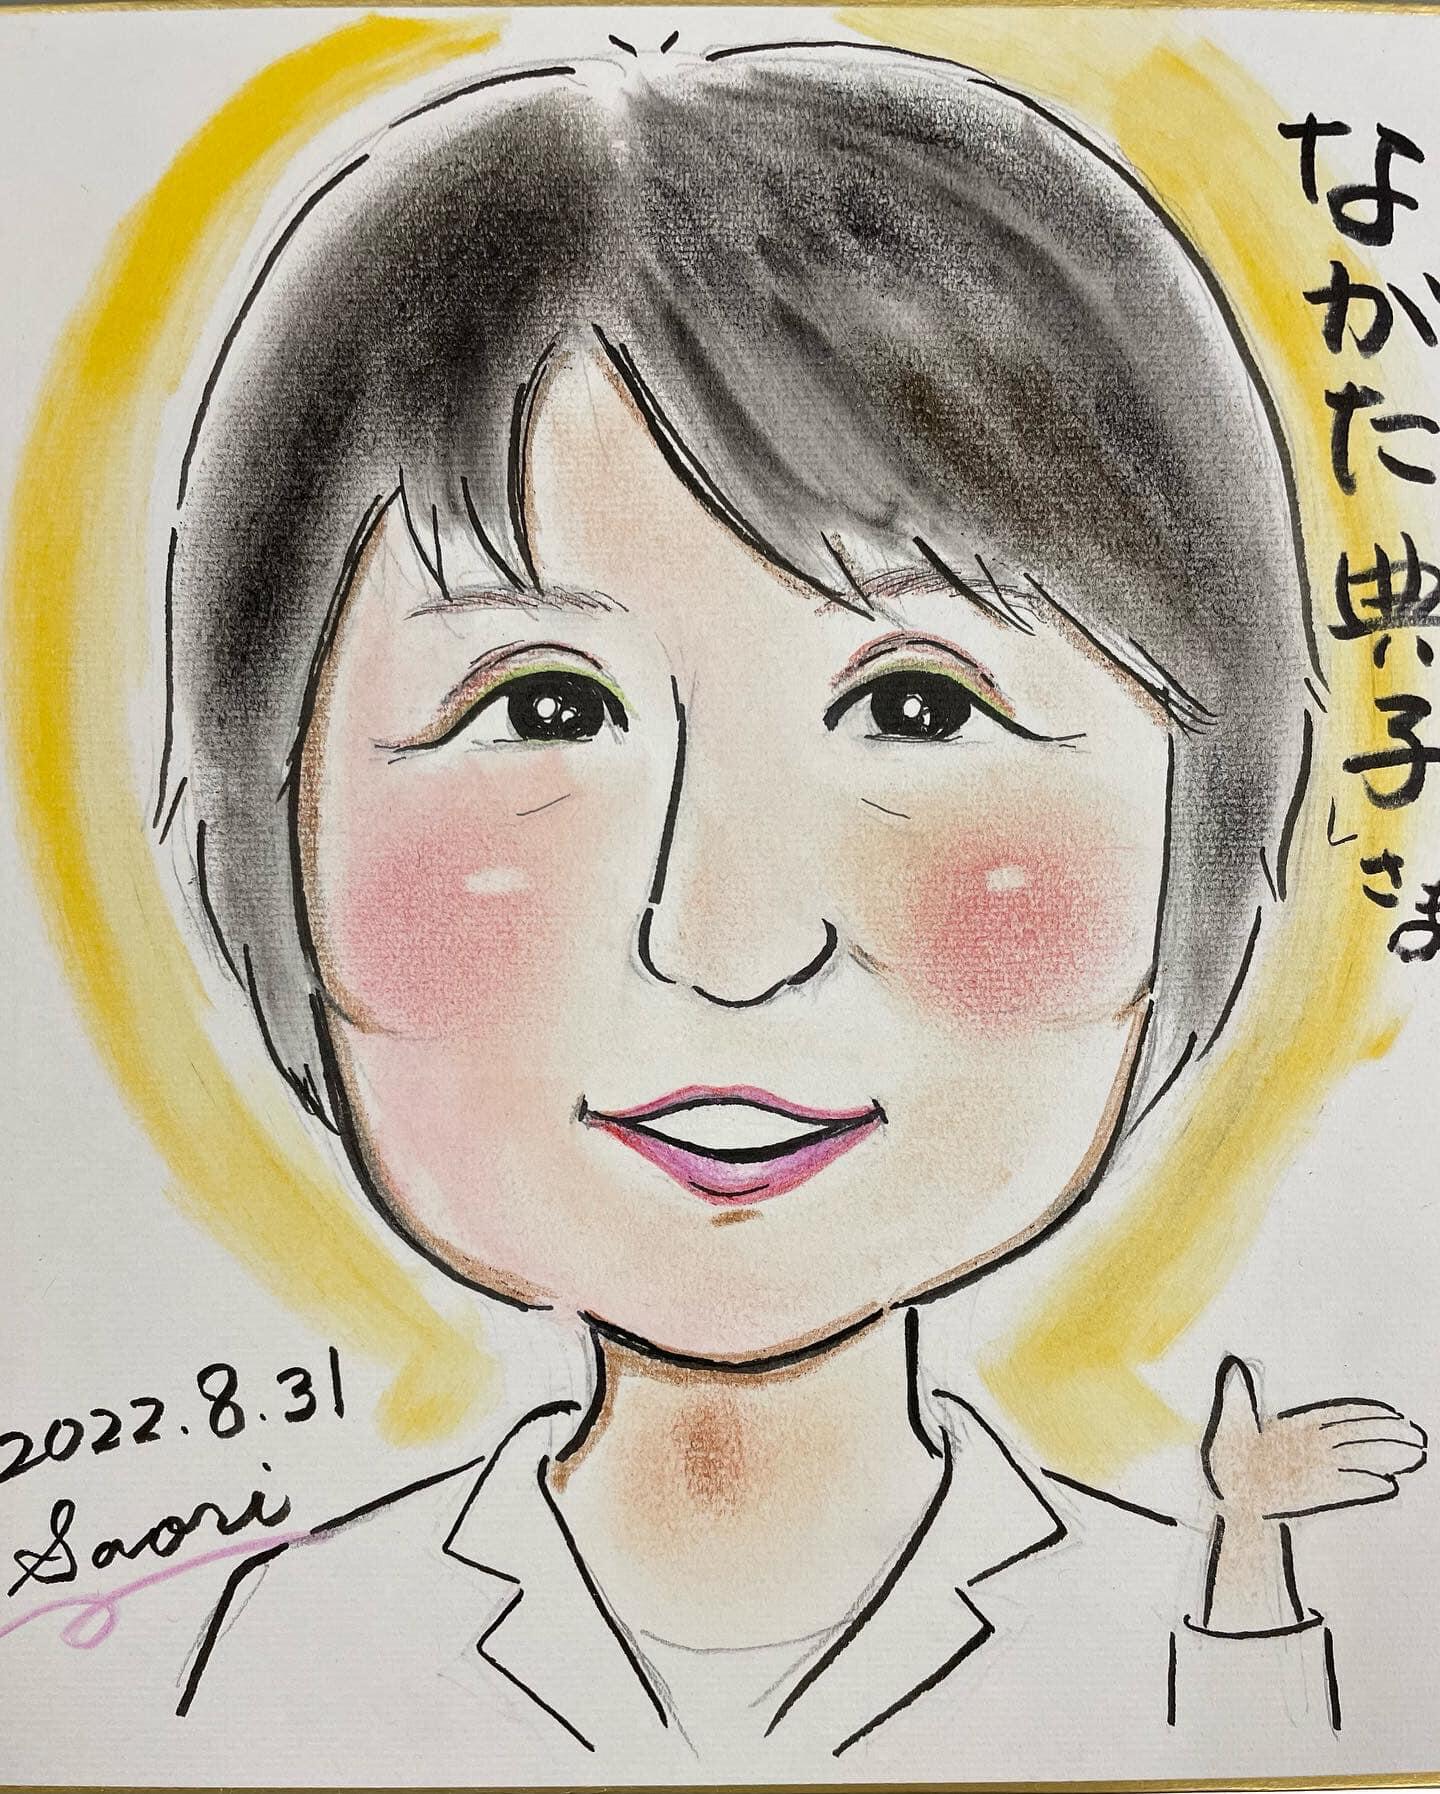 なかた典子さま
2022.8.31
Saori